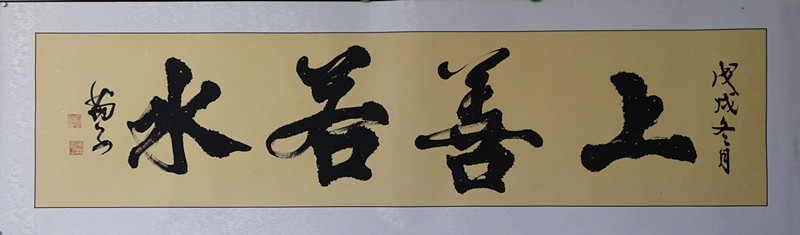 戊戌冬月
上善若水